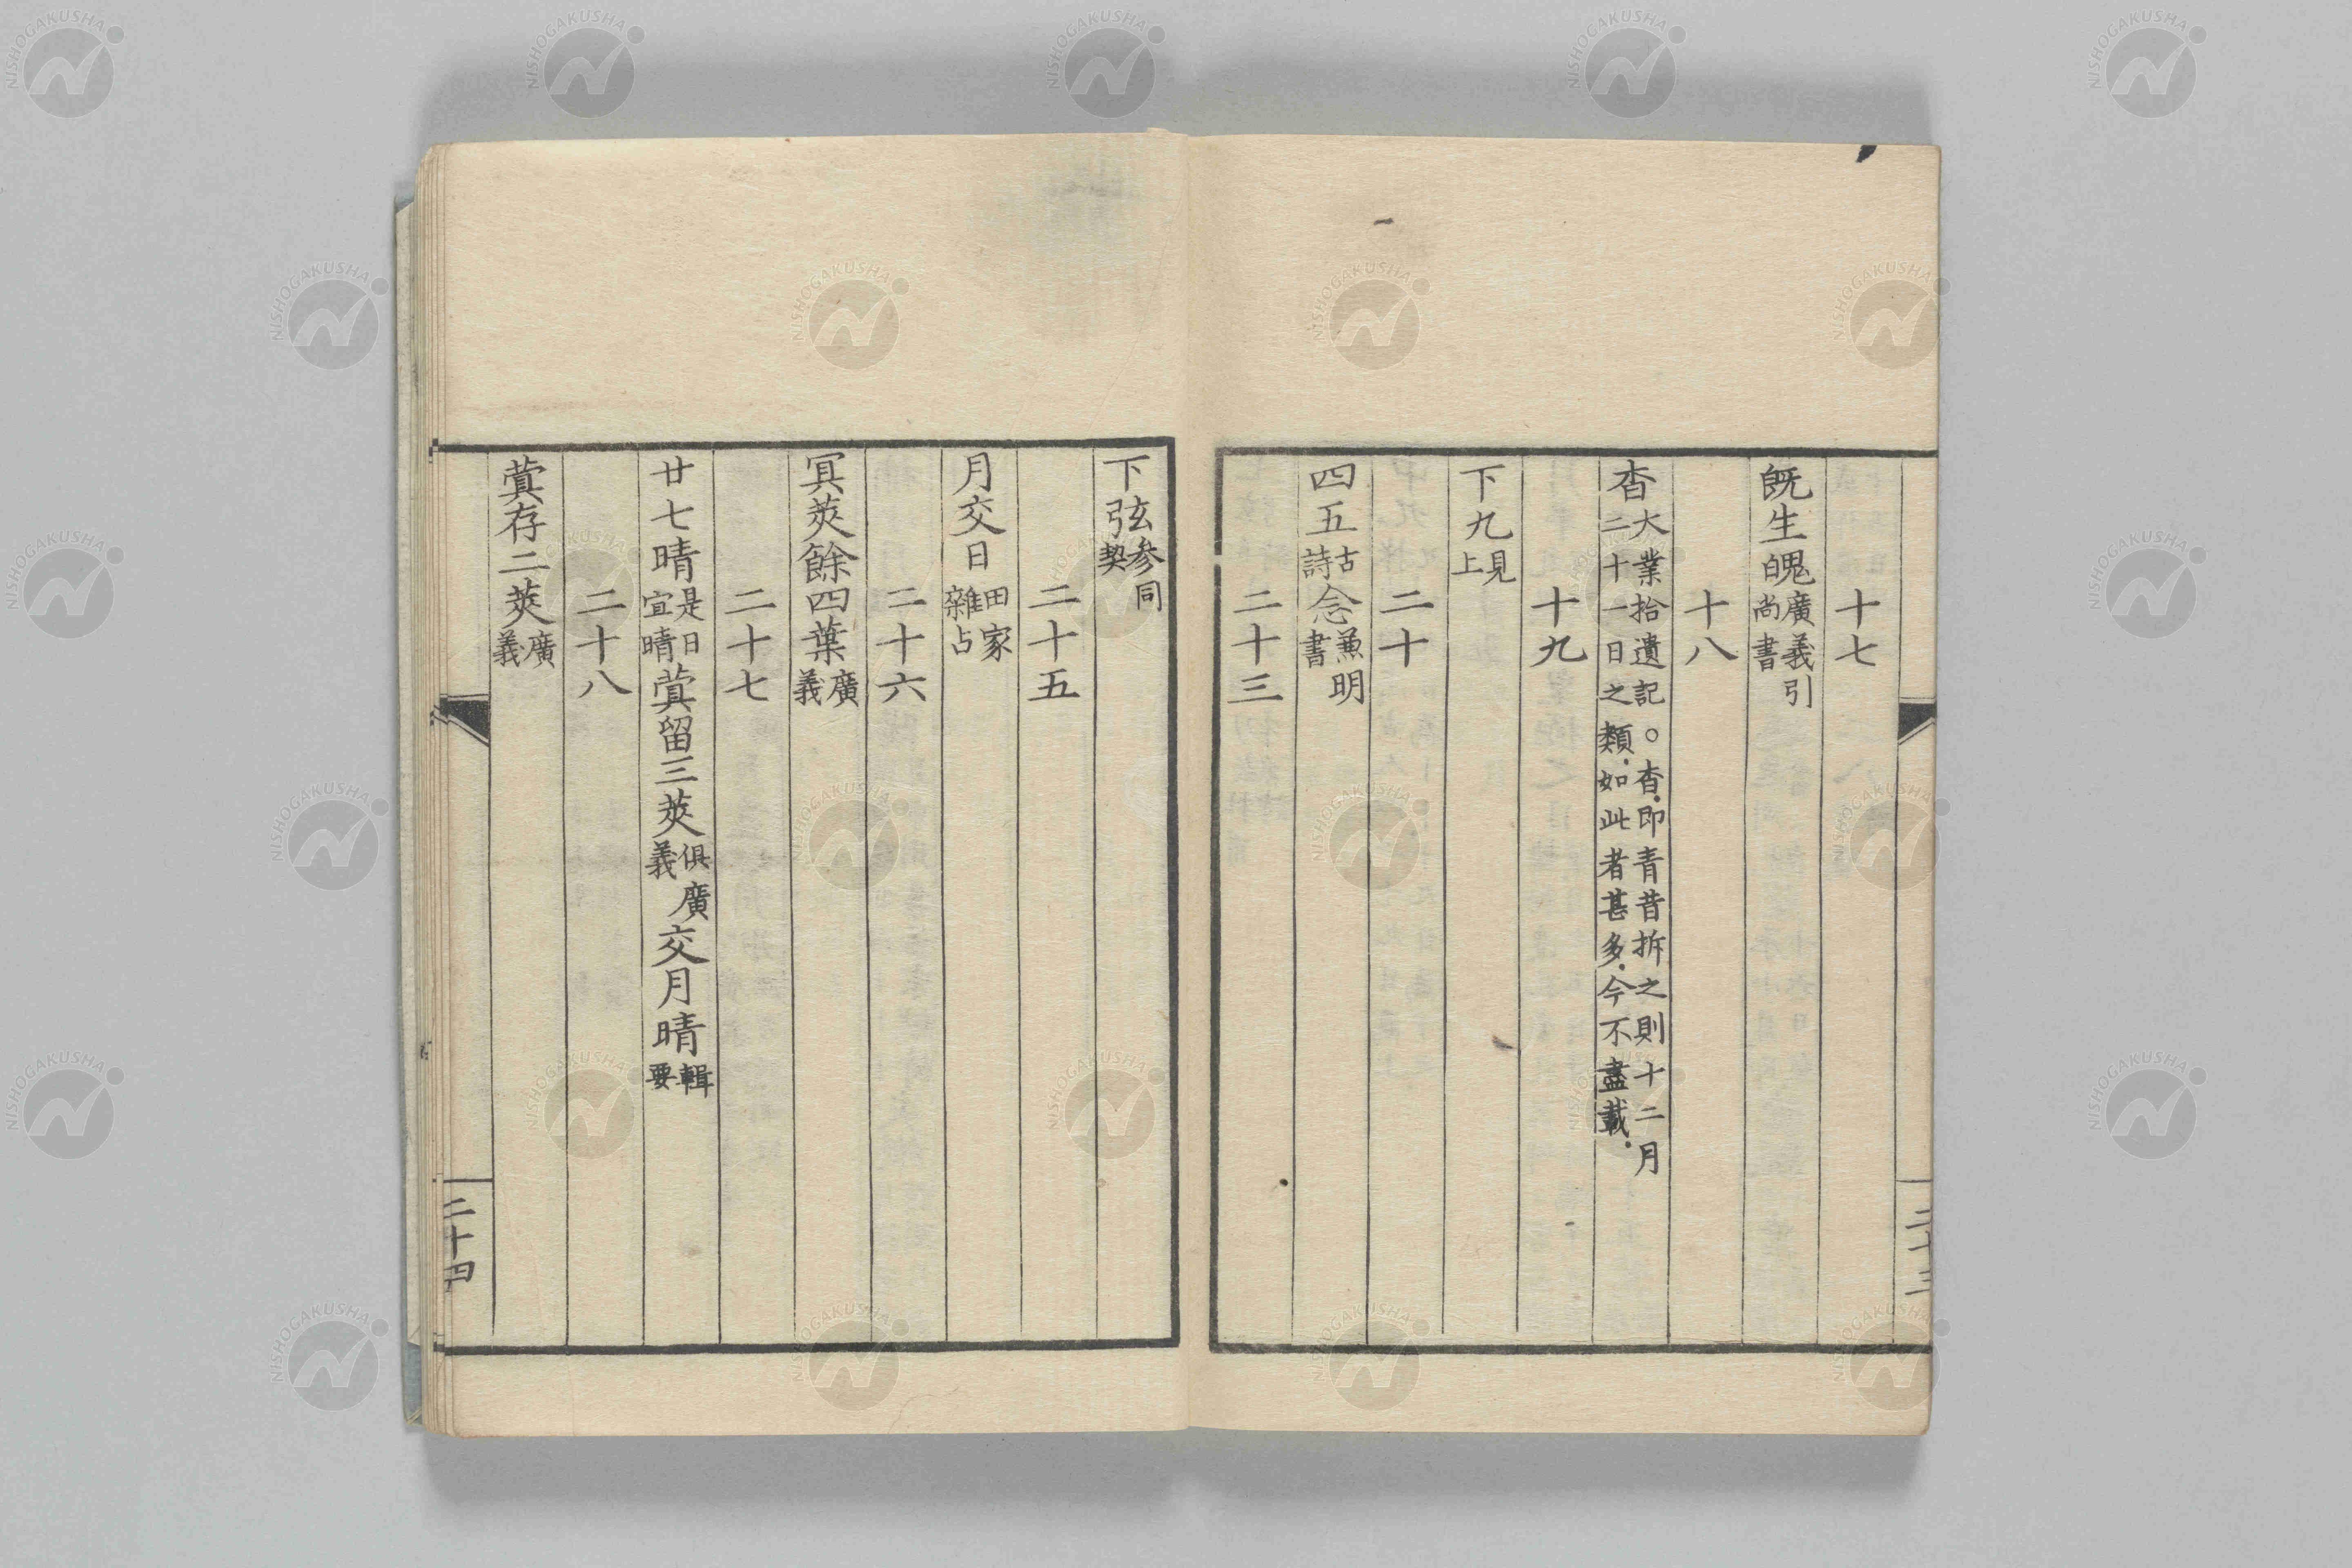 十七
既生魄廣義引尚書
十八
杳大業拾遺記○杳即青昔拆之則十二月二十一日之類如此者甚多今不盡載
十九
下九見上
二十
四五古詩念兼明書
二十三
二十三
下弦参同契
二十五
月交日田家雜占
二十六
蓂莢餘四葉廣義
二十七
廿七晴是日宜晴蓂留三莢俱廣義交月晴輯要
二十八
蓂存二莢廣義
二十四
NISHOGAKUSHA